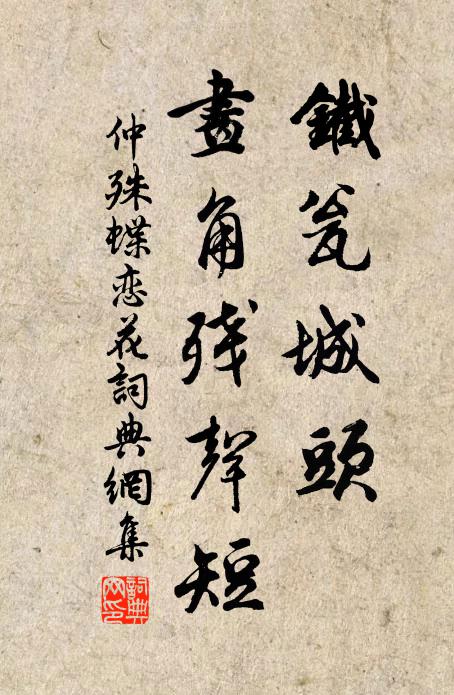 鐵瓮城頭
畫角殘聲短
仲殊蝶恋花詞典網集
詞典
网印